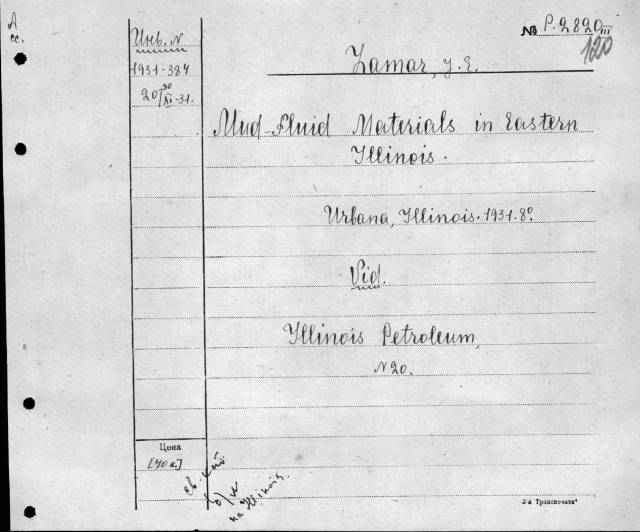 А
сс.
Инв. N
1931-384
№ P.2820 III
120
Lamar, J. E.
Mud-Fluid Materials in Eastern
Illinois.
Urbana, Illinois. 1931. 8°.
Vid.
Illinois Petroleum,
N 20.
Цена
[40 к.]
на Illinois.
3-я Транспечати